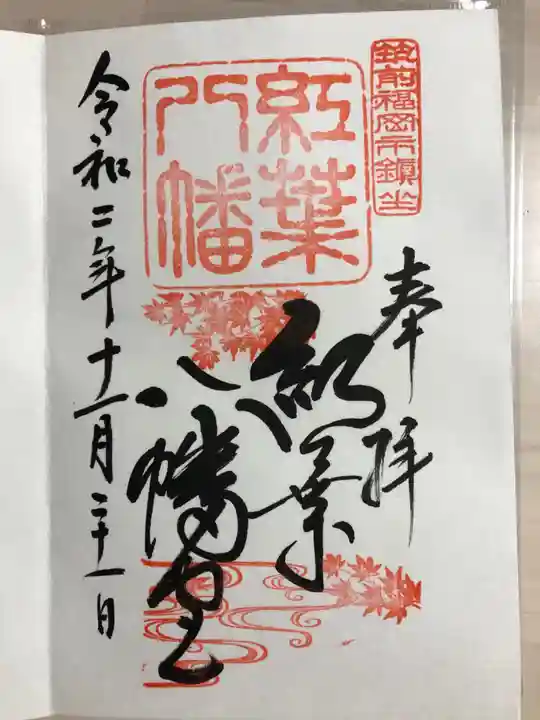 筑前福岡市鎮坐
奉拝
紅葉
八幡
紅葉
八幡宮
令和二年十一月二十一日